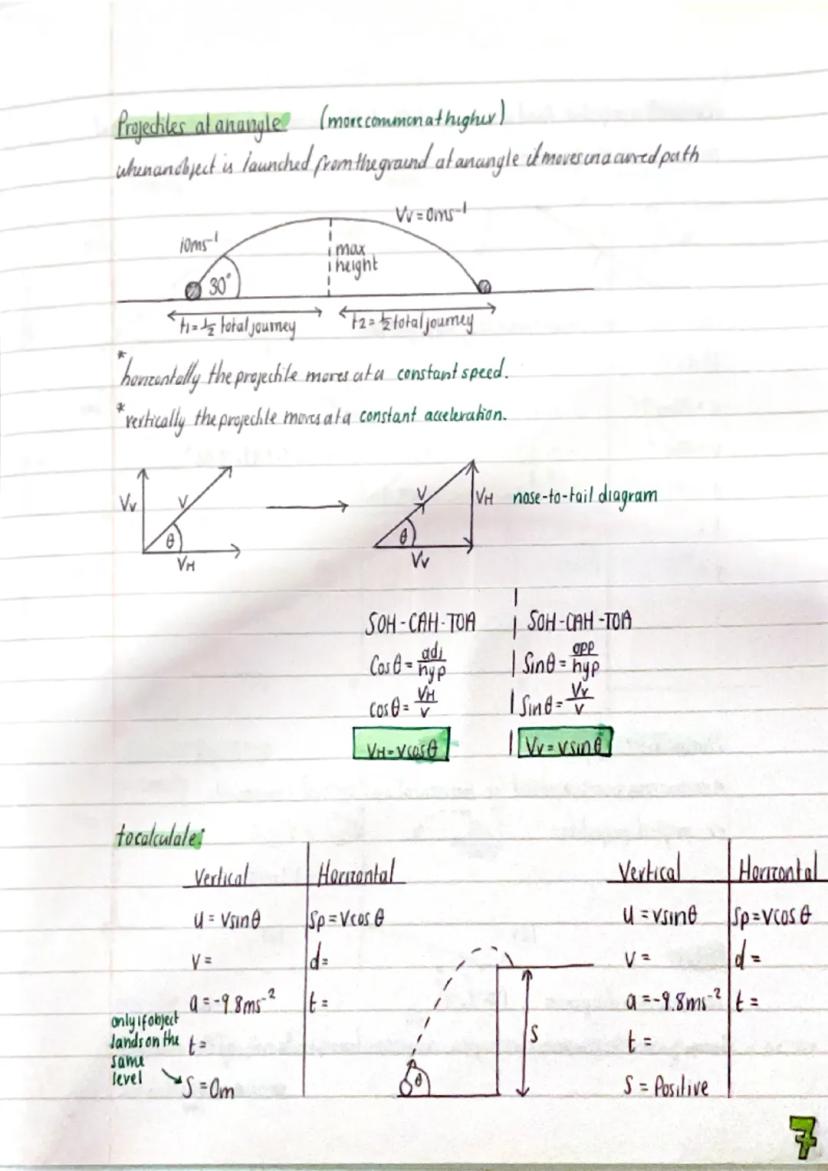 Projectiles at an angle (more common at higher)
when an object is launched from the ground at an angle it moves in a curved path
Vv = 0ms⁻¹
10ms⁻¹
max
height
30°
t1 = ½ total journey t2 = ½ total journey
*horizontally the projectile moves at a constant speed.
*vertically the projectile moves at a constant acceleration.
Vv V θ VH
V θ VH Vv nose-to-tail diagram
SOH-CAH-TOA | SOH-CAH-TOA
Cosθ = adj/hyp | Sinθ = opp/hyp
cosθ = VH/V | Sinθ = Vv/V
VH = vcosθ | Vv = vsinθ
to calculate:
Vertical Horizontal
u = Vsinθ Sp = Vcosθ
v = d =
a = -9.8ms⁻² t =
t =
only if object
lands on the
same
level
S = 0m
θ S
Vertical Horizontal
u = vsinθ Sp = Vcosθ
v = d =
a = -9.8ms⁻² t =
t =
S = Positive
7